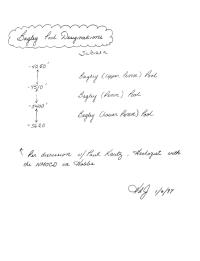 Bagley Pool Designations
Subsea
-4040'
Bagley (Upper Penn) Pool
-4510'
Bagley (Penn) Pool
-5400'
Bagley (Lower Penn) Pool
-5620
* Per discussion w/ Paul Kautz, Geologist with
the NMOCD in Hobbs